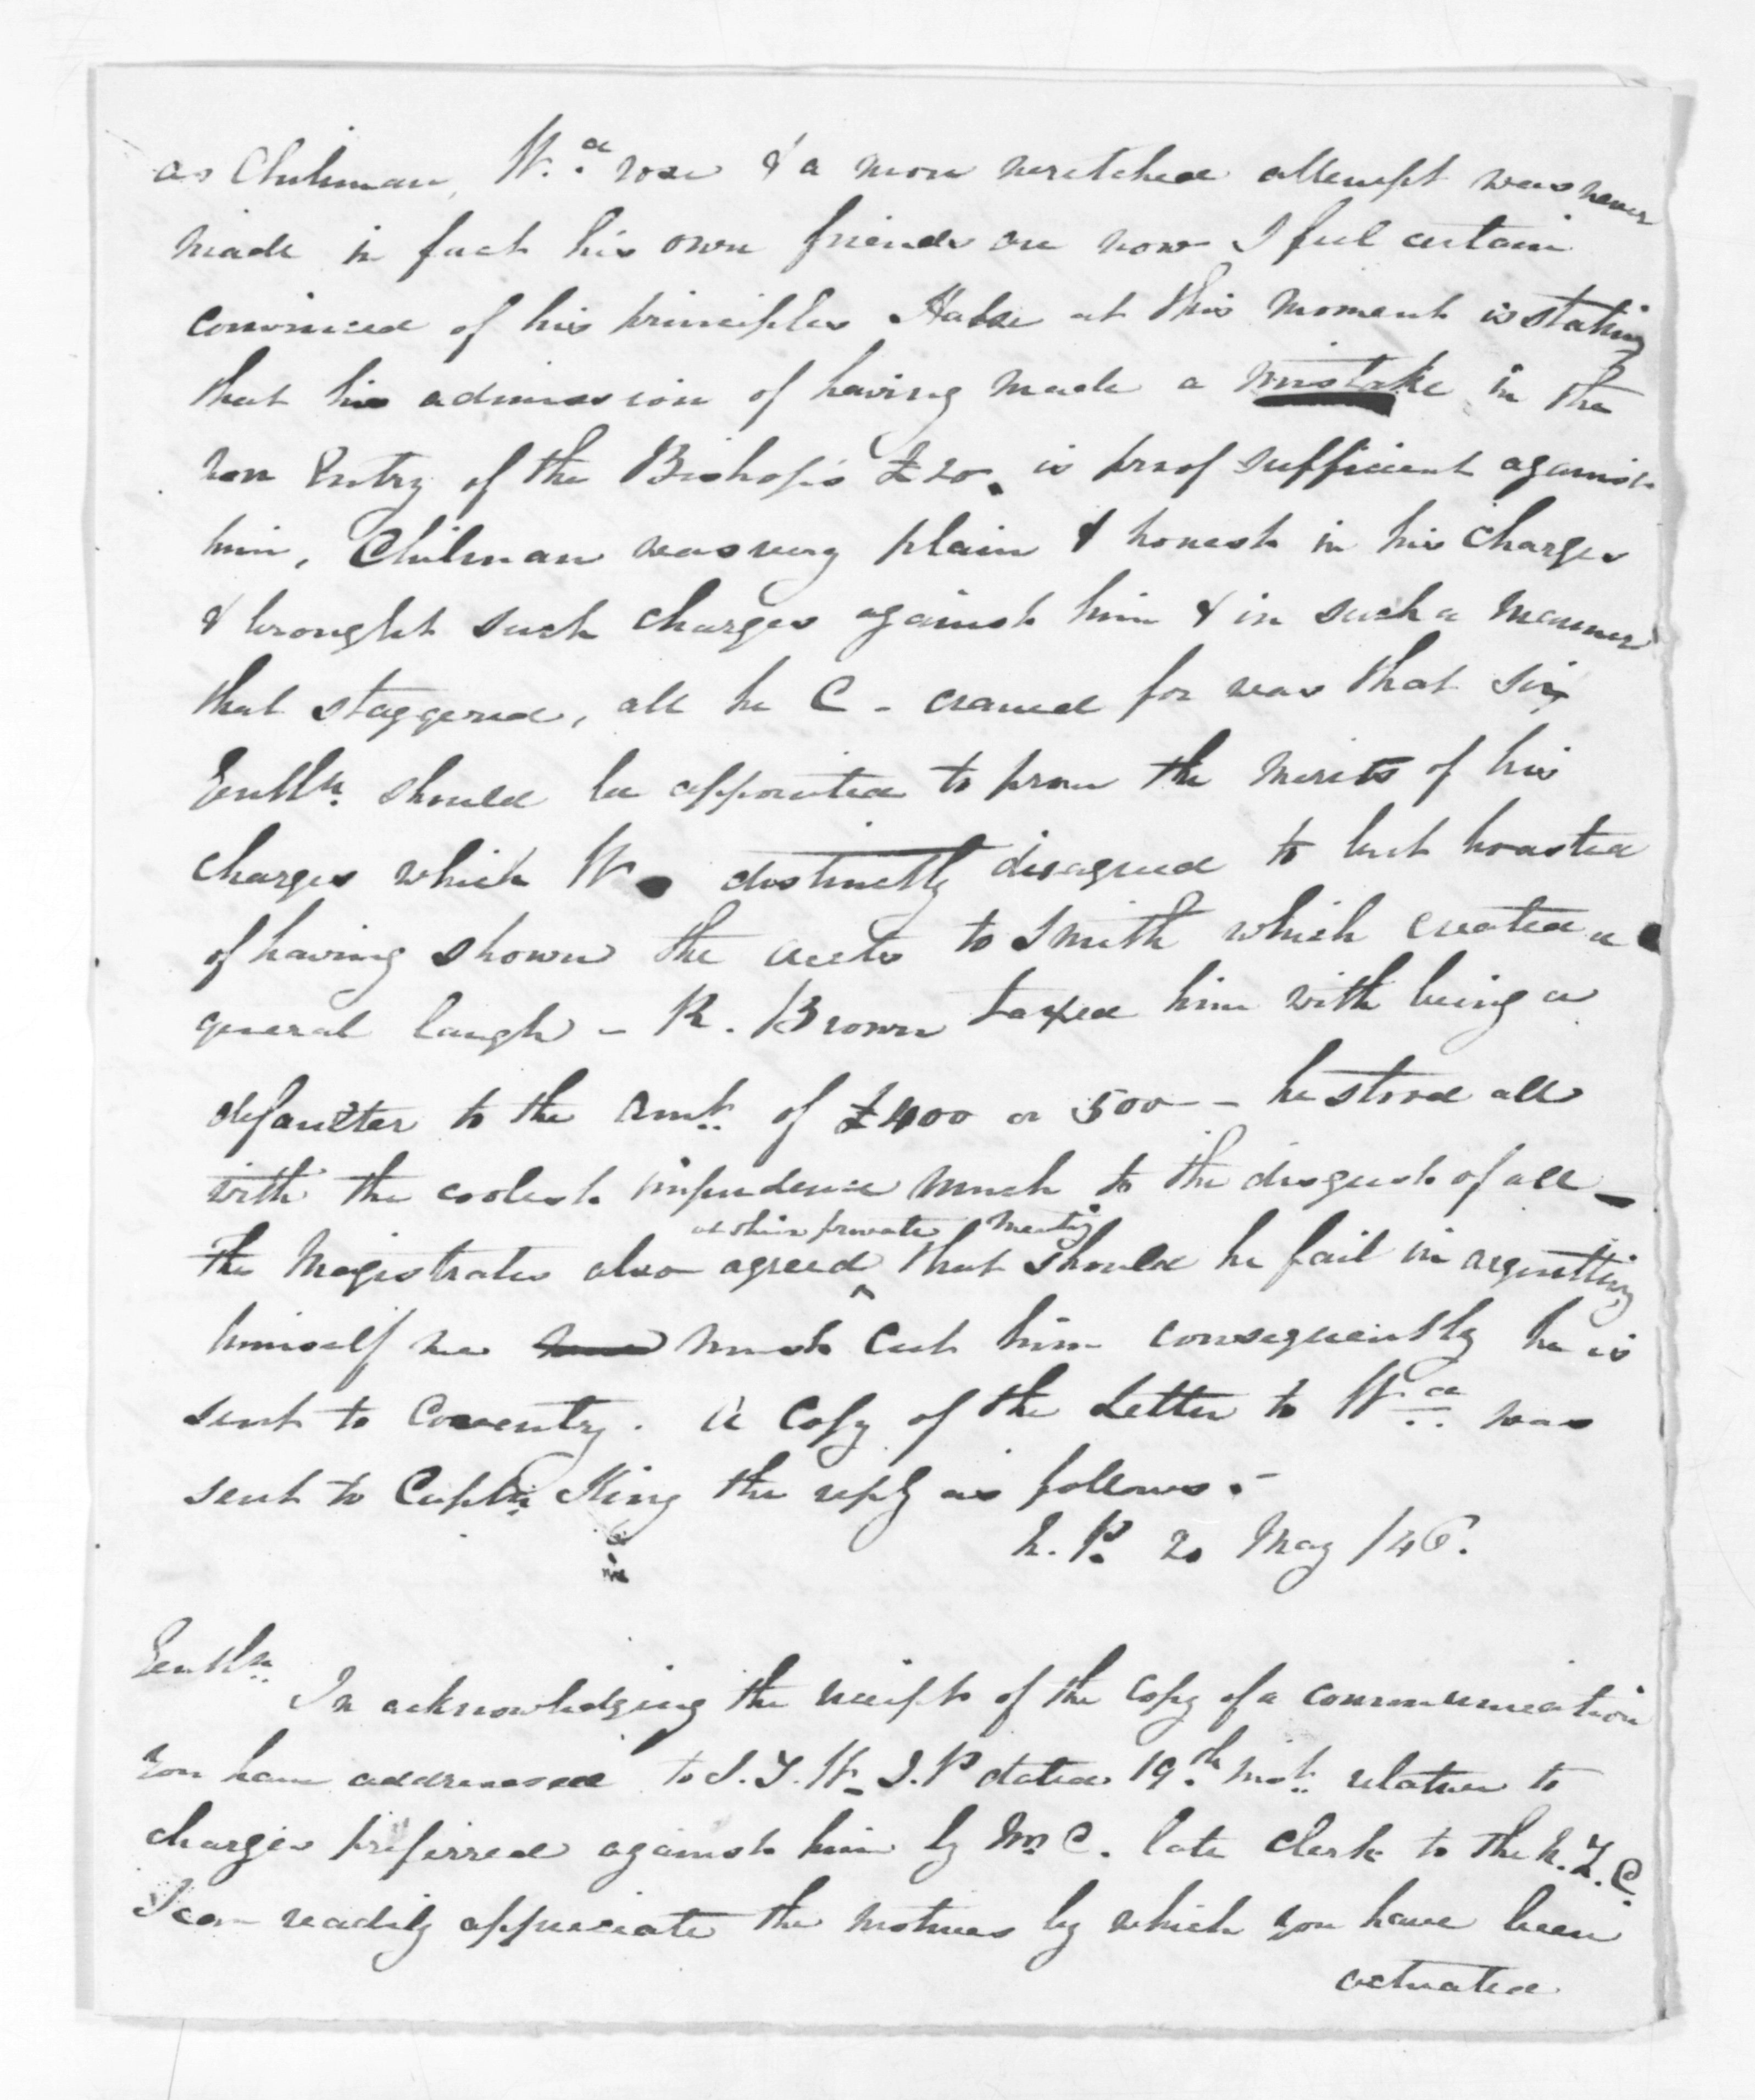 as Chilman, W.a rose & a more wretched attempt was never
made in fact his own friends are now I feel certain
convinced of his principles Halse at this moment is stating
that his admission of having made a mistake in the
non Entry of the Bishop's £20. is proof sufficient against
him, Chilman was very plain & honest in his charges
& brought such charges against him & in such a manner
that staggered, all he C - craved for was that six
Gentln. should be appointed to prove the merits of his
charges which W distinctly disagreed to but boasted
of having shown the accts to Smith which created a
general laugh - R. Brown taxed him with being a
defaulter to the amt. of £400 or 500 - he stood all
with the coolest impudence much to the disgust of all -
The Magistrates also agreed at their private meeting that should he fail in acquitting
himself we must cut him consequently he is
sent to Coventry. A Copy of the Letter to W.a was
sent to Captn. King the reply as follows. -
N. P. 20 May /46.
Gentln.
In acknowledging the receipt of the copy of a communication
you have addressed to J. T. W- J. P dated 19.th inst. relative to
charges preferred against him by Mr C. late Clerk to the N. Z. C.
I can readily appreciate the motives by which you have been
actuated